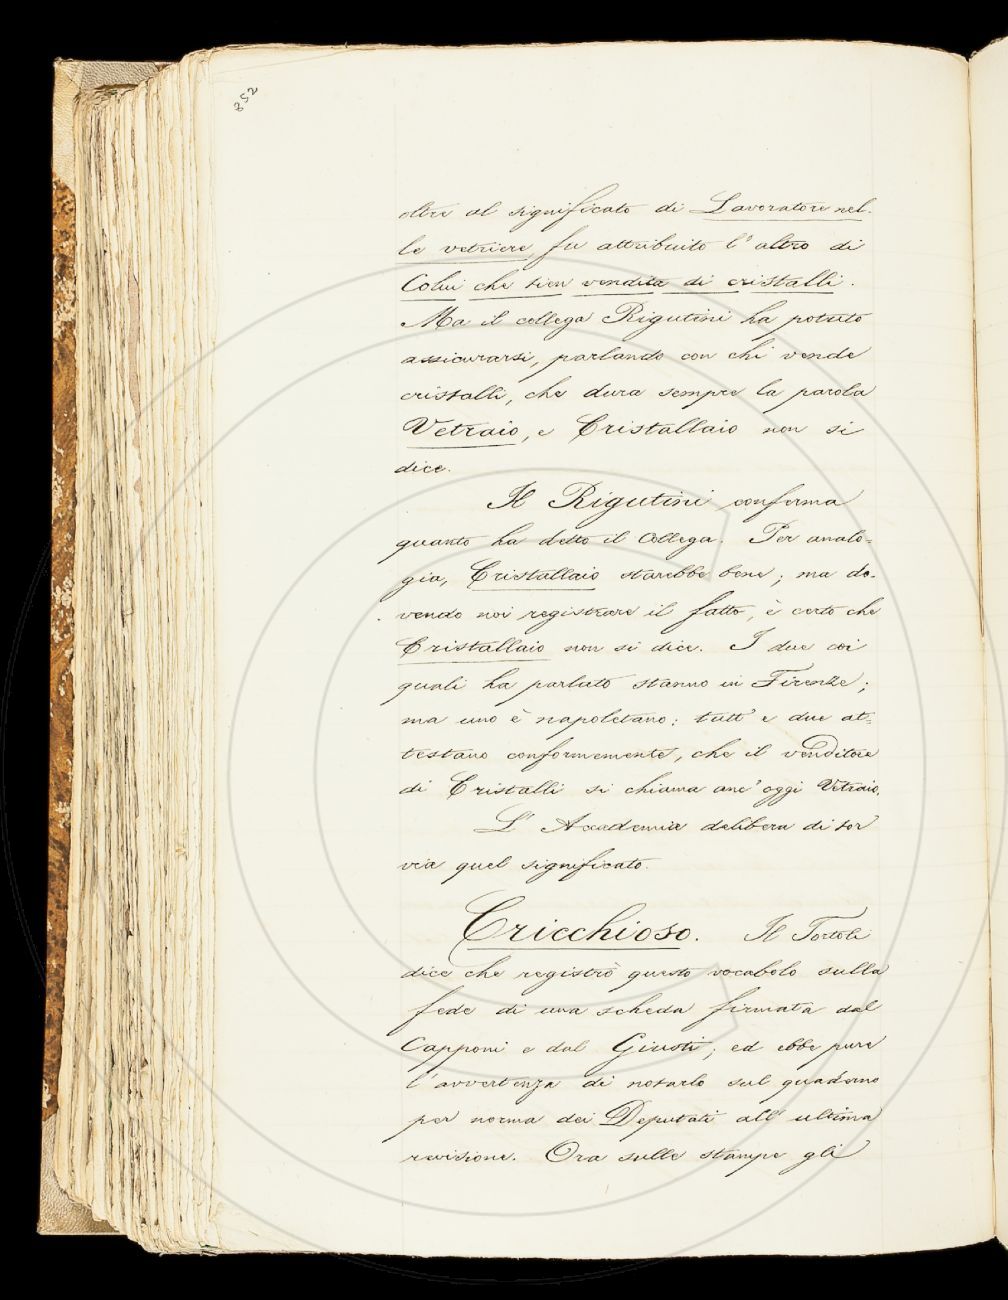 852
oltre al significato di Lavoratore nel-
le vetriere fu attribuito l'altro di
Colui che tien vendita di cristalli.
Ma il collega Rigutini ha potuto
assicurarsi, parlando con chi vende
cristalli, che dura sempre la parola
Vetraio, e Cristallaio non si
dice.
Il Rigutini conferma
quanto ha detto il Collega. Per analo-
gia, Cristallaio starebbe bene; ma do-
vendo noi registrare il fatto, è certo che
Cristallaio non si dice. I due coi
quali ha parlato stanno in Firenze;
ma uno è napoletano: tutt'e due at-
testano conformemente, che il venditore
di Cristalli si chiama anc'oggi Vetraio.
L'Accademia delibera di tor
via quel significato.
Cricchioso. Il Tortoli
dice che registrò questo vocabolo sulla
fede di una scheda firmata dal
Capponi e dal Giusti; ed ebbe pure
l'avvertenza di notarlo sul quaderno
per norma dei Deputati all'ultima
revisione. Ora sulle stampe gli